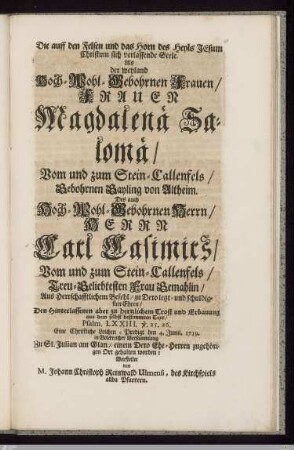 Die auff den Felsen und das Horn des Heyls JEsum
Christum sich verlassende Seele.
Als
der weyland
Hoch-Wohl-Gebohrnen Frauen/
FRAUEN
Magdalenä Sa-
lomä/
Vom und zum Stein-Callenfels/
Gebohrnen Gayling von Altheim.
Des auch
Hoch-Wohl-Gebohrnen Herrn/
HERRN
Carl Casimirs/
Vom und zum Stein-Callenfels/
Treu-Geliebtesten Frau Gemahlin/
Aus Herrschafftlichem Befehl/ zu Dero letzt- und schuldig-
sten Ehren/
Den Hinterlassenen aber zu hertzlichem Trost und Erbauung
aus dem selbst bestimmten Text/
Psalm. LXXIII. ℣. 25. 26.
Eine Christliche Leichen-Predigt den 4. Junii. 1719.
in Versammlung
Zu St. Julian am Glan/ einem Dero Ehe-Herren zugehöri-
gen Ort gehalten worden;
von
M. Johann Christoph Reinwald Ulmensi, des Kirchspiels
allda Pfarrern.